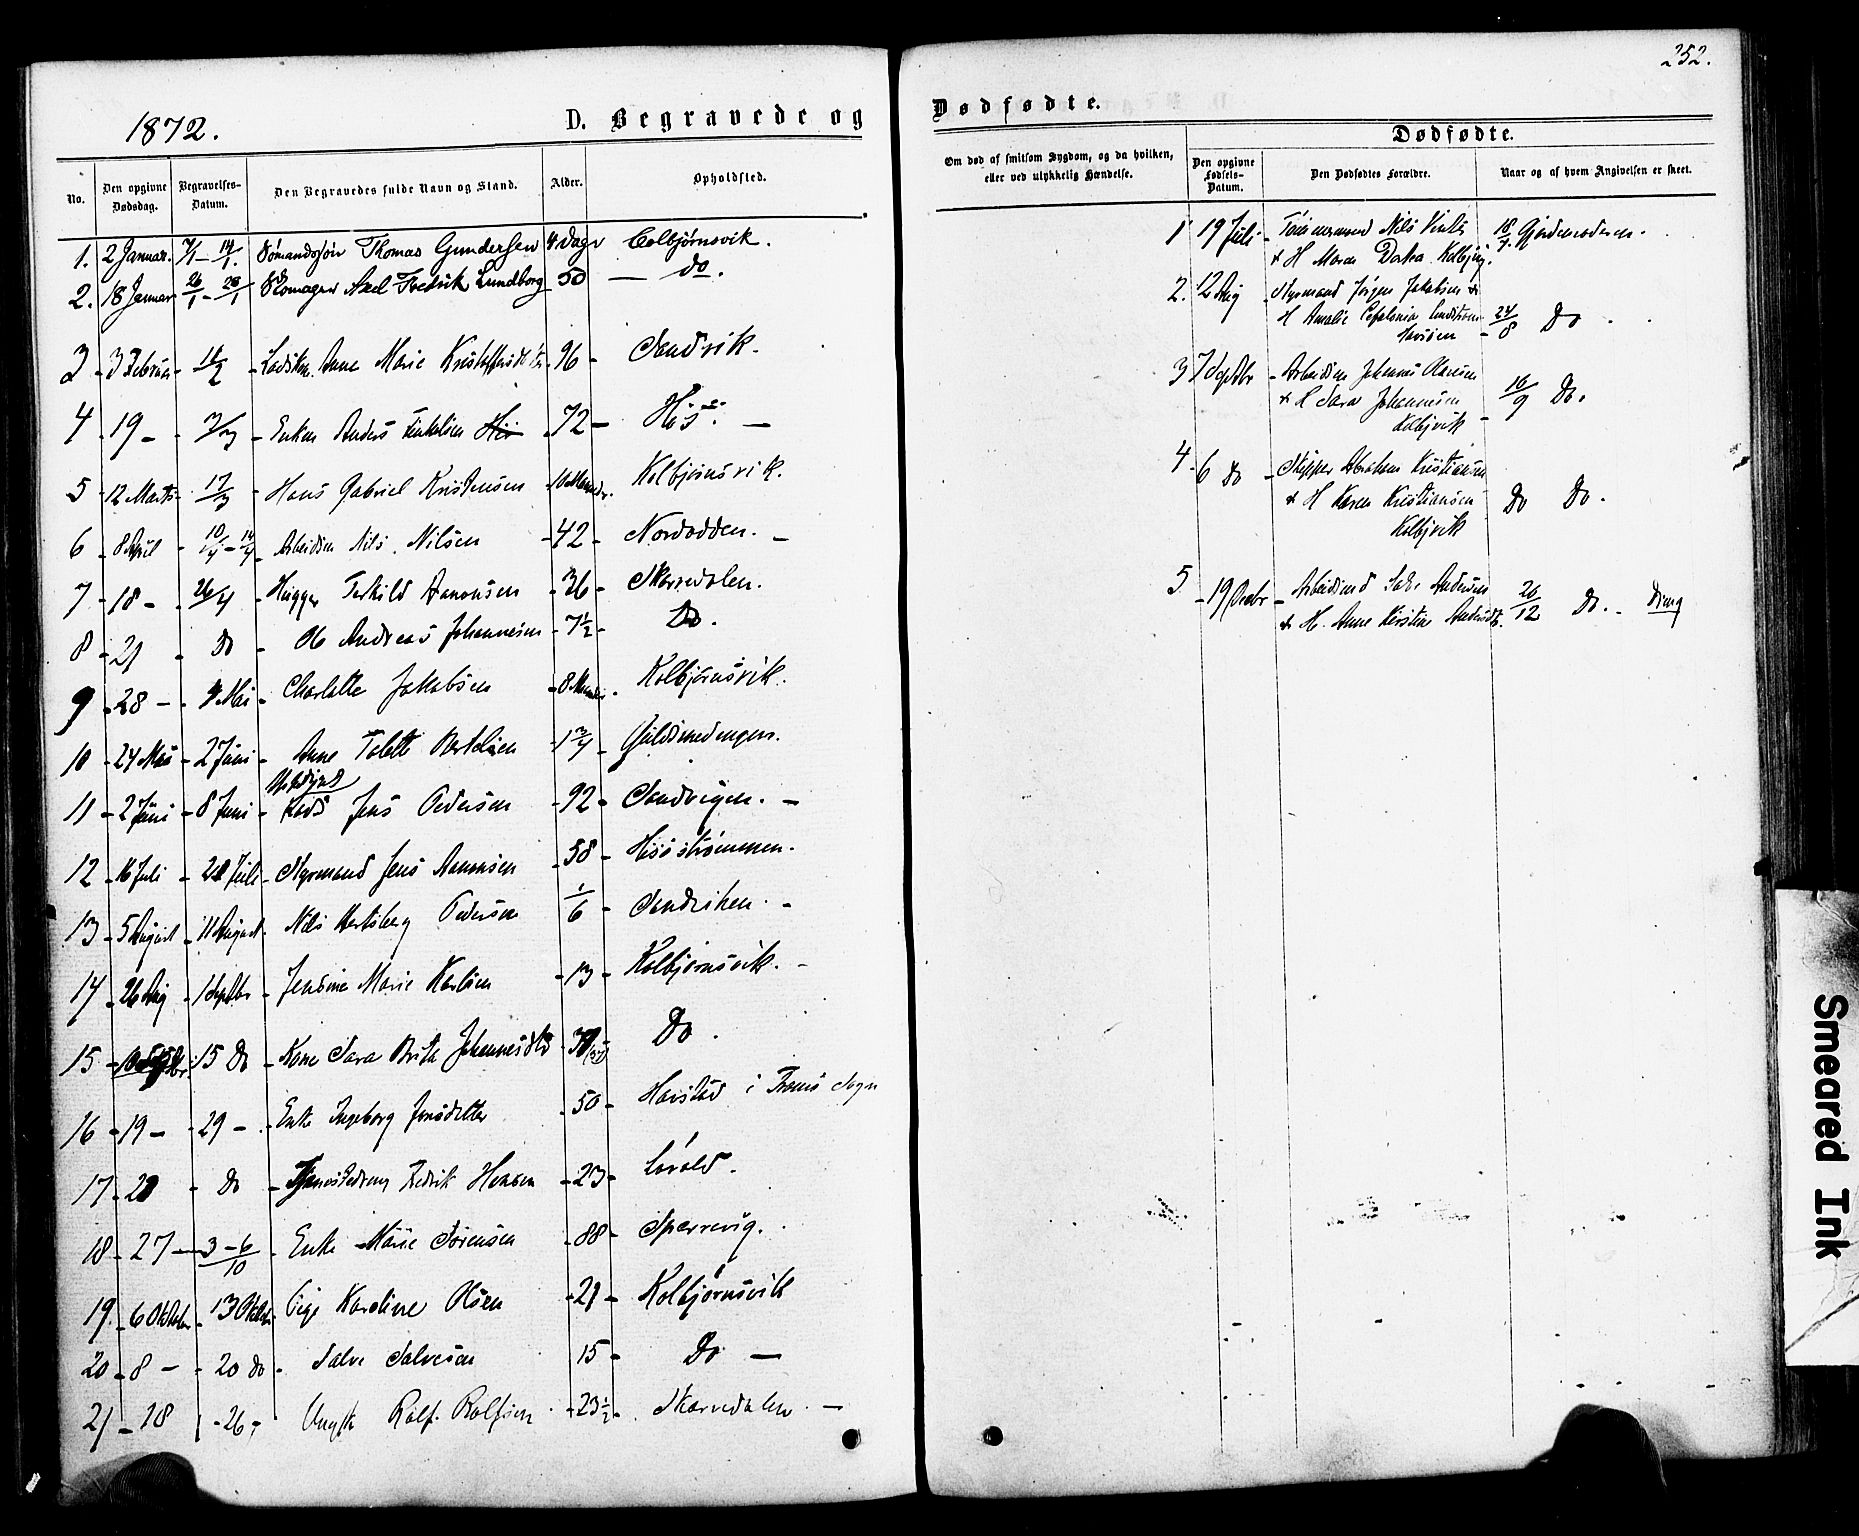 252.
1872.
D. Begravede og
Dødfødte.
No.
Den opgivne Dødsdag.
Begravelses-Datum.
Den Begravedes fulde Navn og Stand.
Alder.
Opholdsted.
1. 2 Januar. 7/1 - 14/1. Sømandssøn Thomas Gundersen 4 Dage Colbjørnsvik.
2. 18 Januar 26/1 - 28/1 Skomager Axel Fredrik Lundborg 50 - do.
3 - 3 Februar - 11/2 - Anne Marie - 96 - Sandvik.
4 - 19 - - 3/3 - Enkem Anders Terkelsen - 72 - His. -
5 - 12 Marts - 17/3 - Hans Gabriel Kristensen - 10 Maaneder. Kolbjørnsvik.
6 - 8 April - 10/4 - 14/4 - Arbeidsm Nils Nilsen - 42 - Nordodden. -
7 - 18 - - 26/4 - Hugger Terkild Aanonsen - 36 - Skarvedalen.
8 - 21 - Do - Ole Andreas Johannesen - 7 1/2 - Do.
9 - 28 - - 4 Mai - Charlotte Jakobsen - 8 Maaneder. Kolbjørnsvik.
10 - 24 Mai - 2 Juni - Anne Tolette Bertelsen - 1 3/4 - Guldsmedengen.
11 - 2 Juni - 8 Juni - Lods Jens Pedersen - 92 - Sandvigen. -
12 - 16 Juli - 21 Juli - Styrmand Jens Aanonsen - 58 - Hisøstrømmen.
13 - 5 August - 11 August - Nils Hertsberg Pedersen 1/6 - Sandviken. -
14 - 26 Aug - 1 Septbr - Jensine Marie Karlsen - 13 - Kolbjørnsvik. -
15 - 10 Septbr. 15 Do - Kone Sara Brita Johannesdtr - Do.
16 - 19 - - 29 - - Enke Ingeborg Jensdatter - 50 - Harstad i Sogn
17 - - Do - Fredrik Hansen - 23 - Lovold.
18 - 27 - 3 - 6/10 - Enke Marie Sørensen - 88 - Sparrevig.
19. - 6 Oktober - 13 Oktober Pige Karoline Olsen - 21 - Kolbjørnsvik
20 - 8 - - 20 do - Salve Salvesen 15 - Do -
21 - 18 - 26 - Ungk Rolf Rolfsen - 23 1/2 - Skarvedalen -
Om død af smitsom Sygdom, og da hvilken, eller ved ulykkelig Hændelse.
Dødfødte.
Den opgivne Fødsels-Datum.
Den Dødfødtes Forældre.
Naar og af hvem Angivelsen er skeet.
1 19 Juli - Tømmermand Nils
& H Maren Kolbjsvig. 18/7. Gjordemoderen.
2. 12 Aug - Styrmand Jørgen Jakobsen &
H Amalie 24/8 Do
3 7 Septbr - Arbeidsm Johannes Olavsen
& H Sara Johannesen
Kolbjvik - 16/9 Do.
4 - 6 Do - Skipper Abraham Kristiansen
& H Karen Kristiansen Do Do.
Kolbjvik
5 - 19 Decbr - Arbeidsmd Salve Andersen
& H. Anne Kirstine Andersdt. 26/12 Do. - Dreng
Smeared Ink